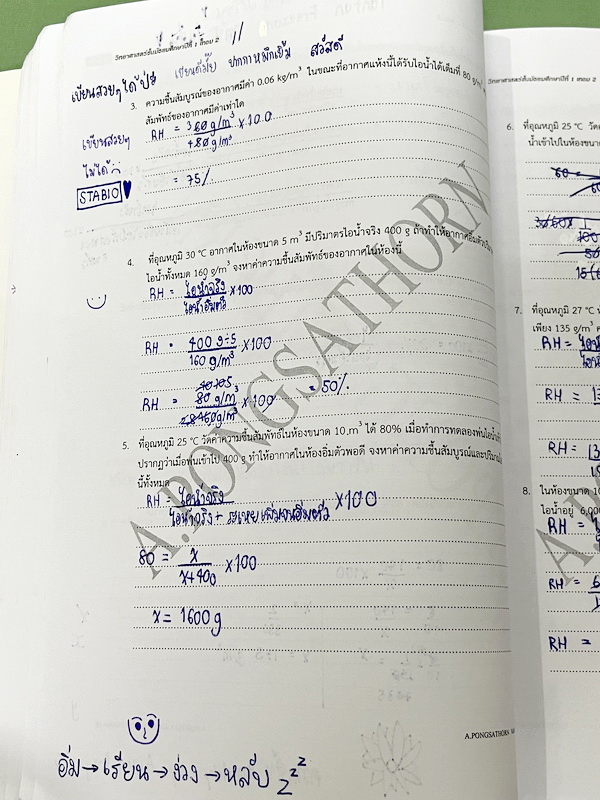 วิทยาศาสตร์ชั้นมัธยมศึกษาปีที่ 1 เทอม 2
เขียนสวยๆได้ปะ เขียนดีมั้ย ปากกาหมึกเข้ม สวัสดี
3. ความชื้นสัมบูรณ์ของอากาศมีค่า 0.06 kg/m³ ในขณะที่อากาศแห้งนี้ได้รับไอน้ำได้เต็มที่ 80 g/m³
สัมพัทธ์ของอากาศมีค่าเท่าใด
เขียนสวยๆ
ไม่ได้
STABIO
RH = 60 g/m³ / 80 g/m³ × 100
= 75%
4. ที่อุณหภูมิ 30 °C อากาศในห้องขนาด 5 m³ มีปริมาตรไอน้ำจริง 400 g ถ้าทำให้อากาศอิ่มตัว
ไอน้ำทั้งหมด 160 g/m³ จงหาค่าความชื้นสัมพัทธ์ของอากาศในห้องนี้
RH = ไอน้ำจริง / ไอน้ำอิ่มตัว × 100
RH = 400 g÷5 / 160 g/m³ × 100
RH = 80 g/m³ / 160 g/m³ × 100 = 50%
5. ที่อุณหภูมิ 25 °C วัดค่าความชื้นสัมพัทธ์ในห้องขนาด 10 m³ ได้ 80% เมื่อทำการทดลองพ่นไอน้ำ
ปรากฏว่าเมื่อพ่นเข้าไป 400 g ทำให้อากาศในห้องอิ่มตัวพอดี จงหาค่าความชื้นสัมบูรณ์และปริมาณ
นี้ทั้งหมด
RH = ไอน้ำจริง / ไอน้ำจริง + ระเหยเพิ่มจนอิ่มตัว × 100
80 = x / x+400 × 100
x = 1600 g
A.PONGSATHORN
A.PONGSATHORN
อิ่ม → เรียน → ง่วง → หลับ zᶻᶻ
วิทยาศาสตร์ชั้นมัธยมศึกษาปีที่ 1 เทอม 2
6. ที่อุณหภูมิ 25 °C วัด
น้ำเข้าไปในห้องขนาด
60 =
7. ที่อุณหภูมิ 27 °C
เพียง 135 g/m³
RH =
RH =
RH =
8. ในห้องขนาด
ไอน้ำอยู่ 6,00
RH =
RH =
RH =